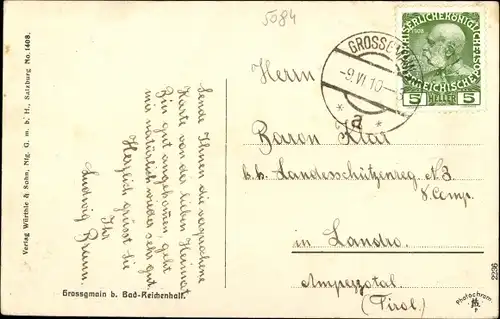 5084
Verlag Würthle & Sohn, Nfg. G. m. b. H., Salzburg No. 1408.
Sende Ihnen die versprochene
Karte von der lieben Heimat
Bin gut angekommen, geht
mir natürlich wieder sehr gut.
Herzlich grüsst Sie
Ihr
Ludwig Braun.
Grossgmain b. Bad-Reichenhall.
GROSSGMAIN
-9.VI.10-
* a *
KAISERLICHE KÖNIGLICHE
ÖSTERREICHISCHE POST
1908
5 HELLER 5
Herrn
Baron Klar
k.k. Landesschützenreg. No 3
8. Comp.
in Landro.
Ampezzotal.
(Tirol.)
2236
Photochrom.